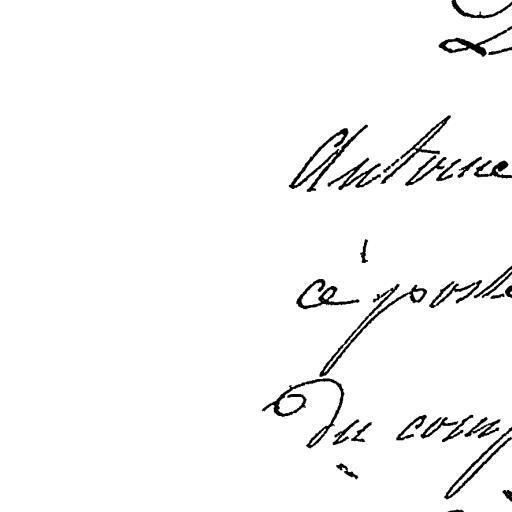 Antoine
ce poste
Du comp